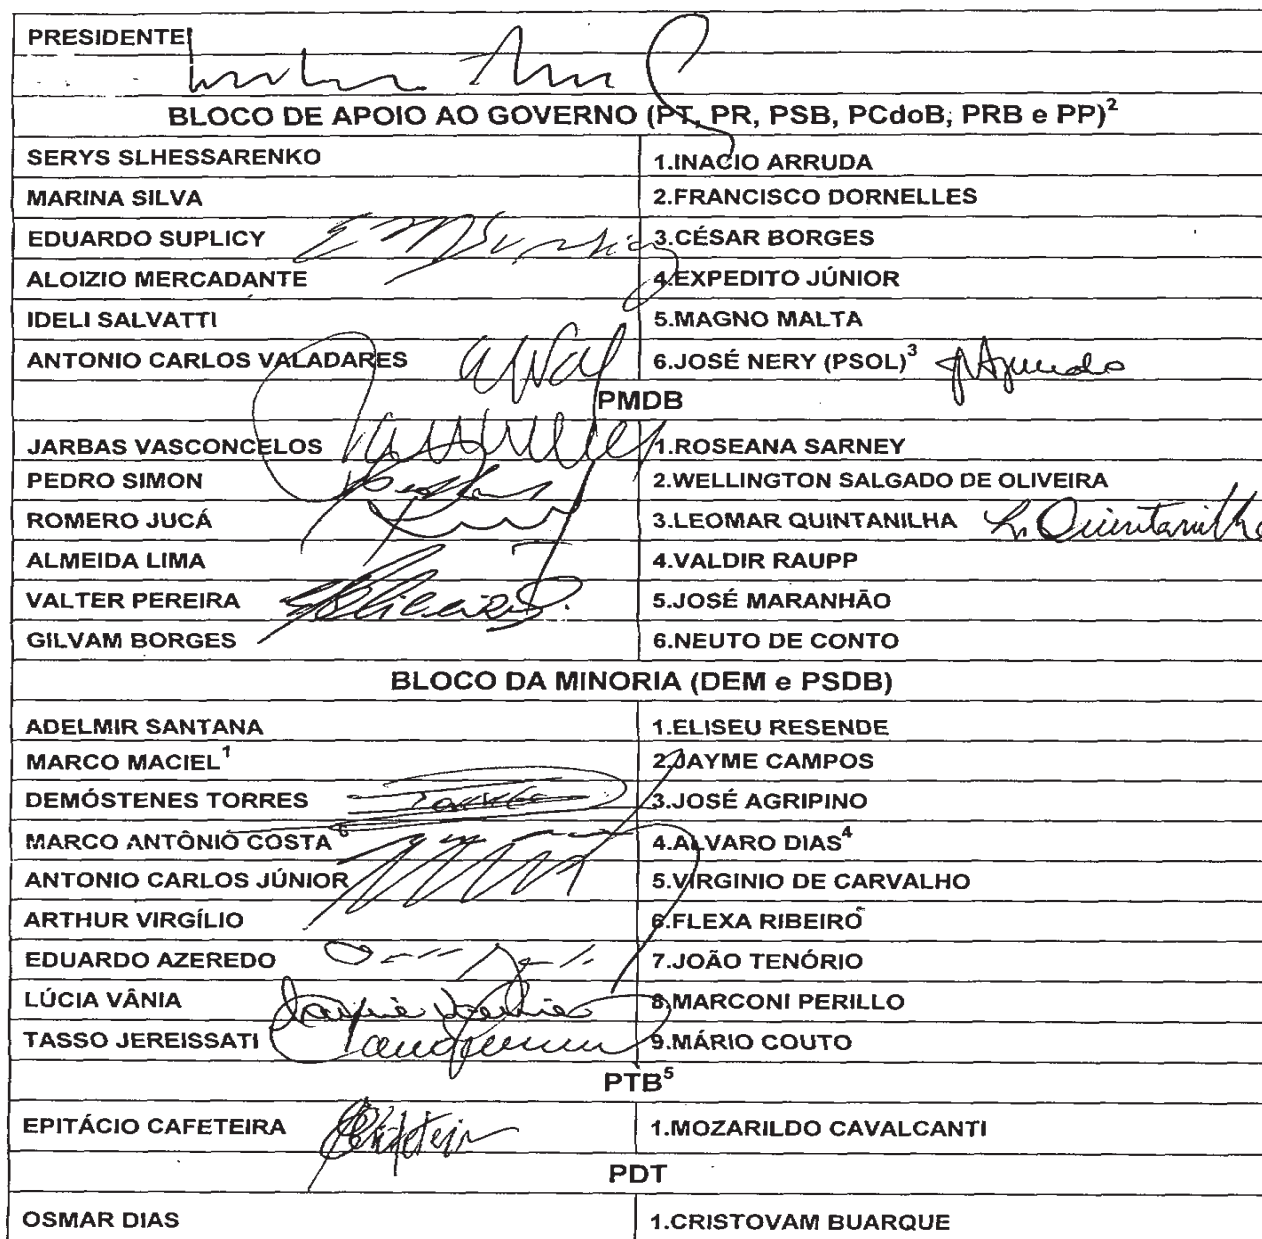 PRESIDENTE
BLOCO DE APOIO AO GOVERNO (PT, PR, PSB, PCdoB, PRB e PP)²
SERYS SLHESSARENKO 1.INACIO ARRUDA
MARINA SILVA 2.FRANCISCO DORNELLES
EDUARDO SUPLICY 3.CÉSAR BORGES
ALOIZIO MERCADANTE 4.EXPEDITO JÚNIOR
IDELI SALVATTI 5.MAGNO MALTA
ANTONIO CARLOS VALADARES 6.JOSÉ NERY (PSOL)³
PMDB
JARBAS VASCONCELOS 1.ROSEANA SARNEY
PEDRO SIMON 2.WELLINGTON SALGADO DE OLIVEIRA
ROMERO JUCÁ 3.LEOMAR QUINTANILHA L. Quintanilha
ALMEIDA LIMA 4.VALDIR RAUPP
VALTER PEREIRA 5.JOSÉ MARANHÃO
GILVAM BORGES 6.NEUTO DE CONTO
BLOCO DA MINORIA (DEM e PSDB)
ADELMIR SANTANA 1.ELISEU RESENDE
MARCO MACIEL¹ 2.JAYME CAMPOS
DEMÓSTENES TORRES 3.JOSÉ AGRIPINO
MARCO ANTÔNIO COSTA⁶ 4.ALVARO DIAS⁴
ANTONIO CARLOS JÚNIOR 5.VIRGINIO DE CARVALHO
ARTHUR VIRGÍLIO 6.FLEXA RIBEIRO
EDUARDO AZEREDO 7.JOÃO TENÓRIO
LÚCIA VÂNIA 8.MARCONI PERILLO
TASSO JEREISSATI 9.MÁRIO COUTO
PTB⁵
EPITÁCIO CAFETEIRA 1.MOZARILDO CAVALCANTI
PDT
OSMAR DIAS 1.CRISTOVAM BUARQUE